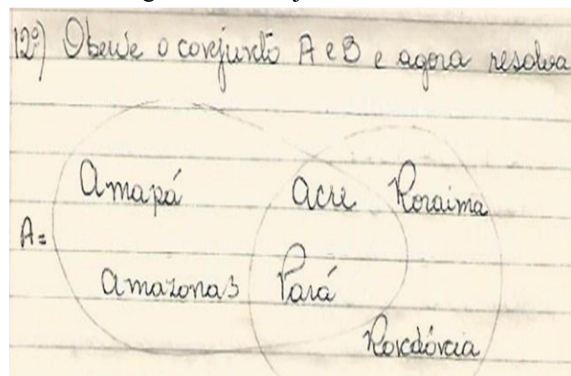 12º) Observe o conjunto A e B e agora resolva
Amapá Acre Roraima
A=
Amazonas Pará
Rondônia